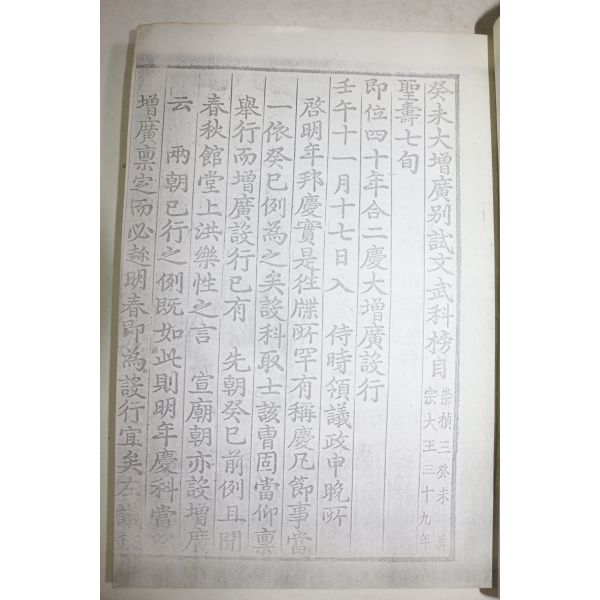 癸未大增廣別試文武科榜目
崇禎三癸未 英
宗大王三十九年
聖壽七旬
即位四十年合二慶大增廣設行
壬午十一月十七日入 侍時領議政申晩所
啓明年邦慶實是往牒所罕有稱慶凡節事當
一依癸巳例為之矣設科取士該曹固當仰禀
舉行而增廣設行已有 先朝癸巳前例且聞
春秋館堂上洪樂性之言 宣廟朝亦設增廣
云 兩朝已行之例既如此則明年慶科當以
增廣禀定而必趂明春即為設行宜矣左議政